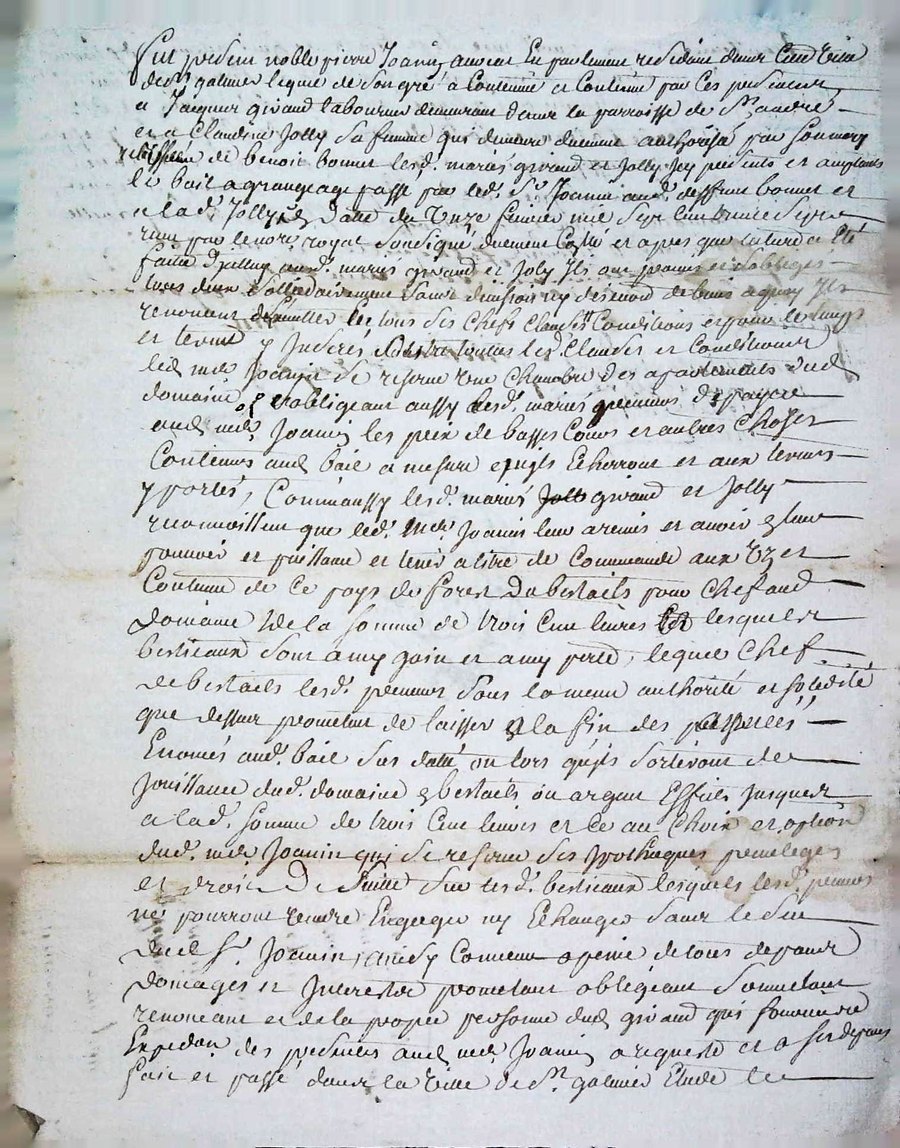 Fut présent noble pierre Joanin avocat En parlement residant dans Cette Ville
de St galmier lequel de son gré a Continué et Continue par Ces presentes
a Jacques givaud laboureur demeurant dans la parroisse de St andré
et a Claudine Jolly sa femme qui demeure duement authorisée par son mary
de benoit bonnet lesd. mariés givaud et Jolly Icy presents et acceptants
le bail a grangeage passé par led. Sr. Joanin aud. deffunt bonnet et
a lad. Jolly datté du Onze fevrier mil Sept Cent
par le nore. royal soussigné duement Collé et apres que lecture a Eté
faitte aud. mariés givaud et Joly Ils ont promis et s'obligent
tous deux Sollidairement Sans division ny de biens a quoy Ils
renoncent les tous ses Chefs Clauses Conditions et pour le temps
et terme y Inserés toutes les Clauses et Conditions
led. me. Joanin Se reserve Une Chambre des apartements dud.
domaine s'obligeant aussy lesd. mariés preneurs de payer
aud. me. Joanin les prix de basses Cours et autres Choses
Contenues aud. bail a mesure qu'ils Echerront et aux termes
y portés, Comme aussy lesd. mariés givaud et Jolly
reconnoissent que led. Me. Joanin leur a remis et avoir En leur
pouvoir et puissance et tenir a titre de Commande aux Uz et
Coutume de Ce pays de forest Du bestails pour Chef aud.
Domaine de la Somme de trois Cent livres lesquels
bestieaux Sont a my gain et a my perte, lequel Chef
de bestails lesd. preneurs Sous la meme authorité et solidité
que dessus promettent de laisser a la fin des
Enoncés aud. bail Sus datté ou lors qu'ils Sortiront de
Jouissance dud. domaine En bestails ou argent Effectifs Jusques
a lad. Somme de trois Cent livres et Ce au Choix et option
dud. me. Joanin qui Se reserve Ses ypotheques privileges
et droit De Suitte Sur lesd. bestieaux lesquels lesd. preneurs
ne pourront Vendre Engager ny Echanger Sans le Sçu
dud. Sr. Joanin, ainsy Convenu a peine de tous depans
domages et Interests promettant obligeant Soumettant
renonçant et de la propre personne dud. givaud qui fournira
Expedon. des presentes aud. me. Joanin a requeste et a Ses depans
fait et passé dans la Ville de St galmier Etude le